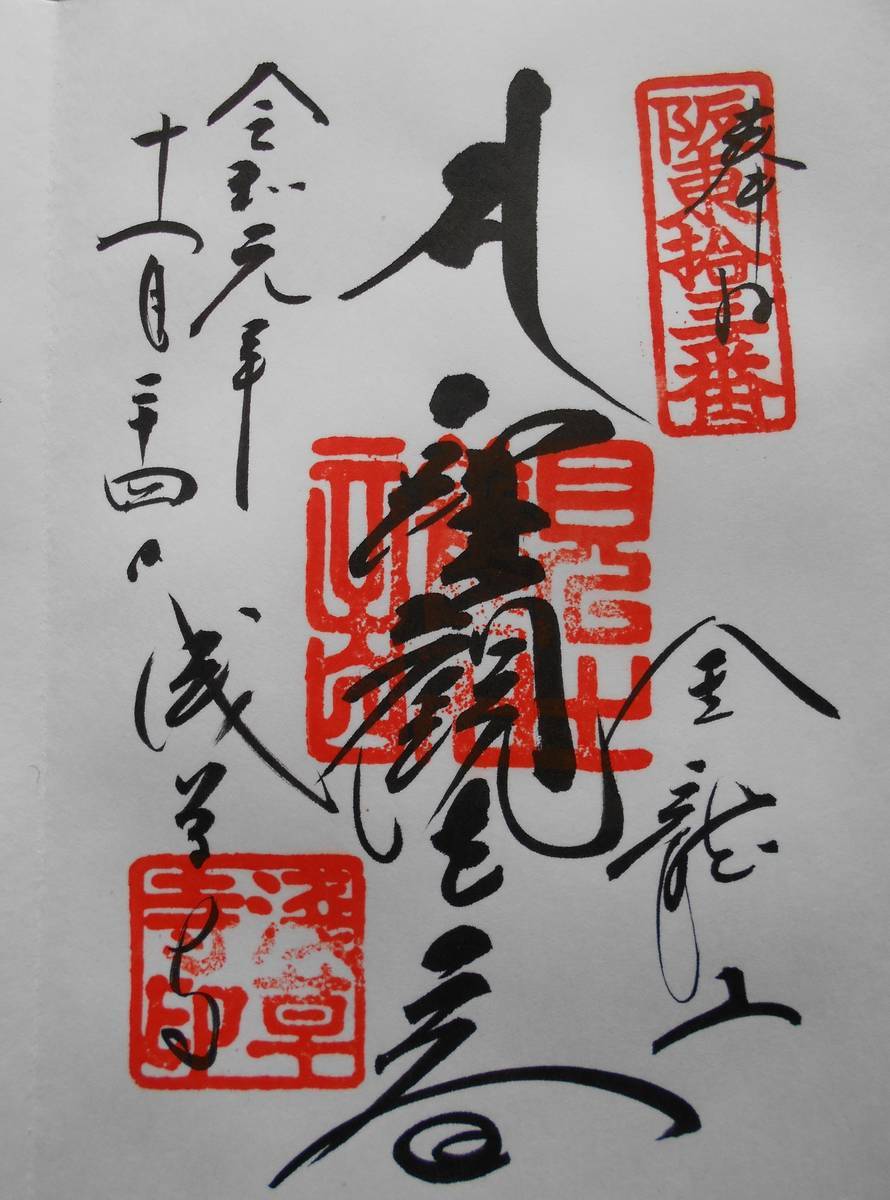 奉拝
阪東拾三番
金龍山
聖観世音
令和元年
十一月二十四日
浅草寺
浅草寺印